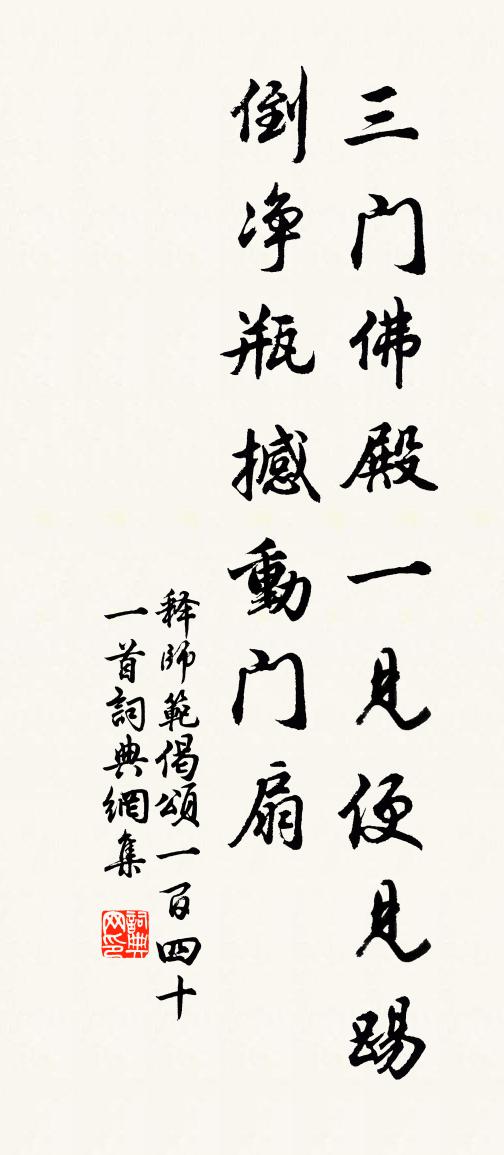 三门佛殿一见便见踢
倒净瓶撼動门扇
释師範偈頌一百四十
一首詞典網集
詞典网印